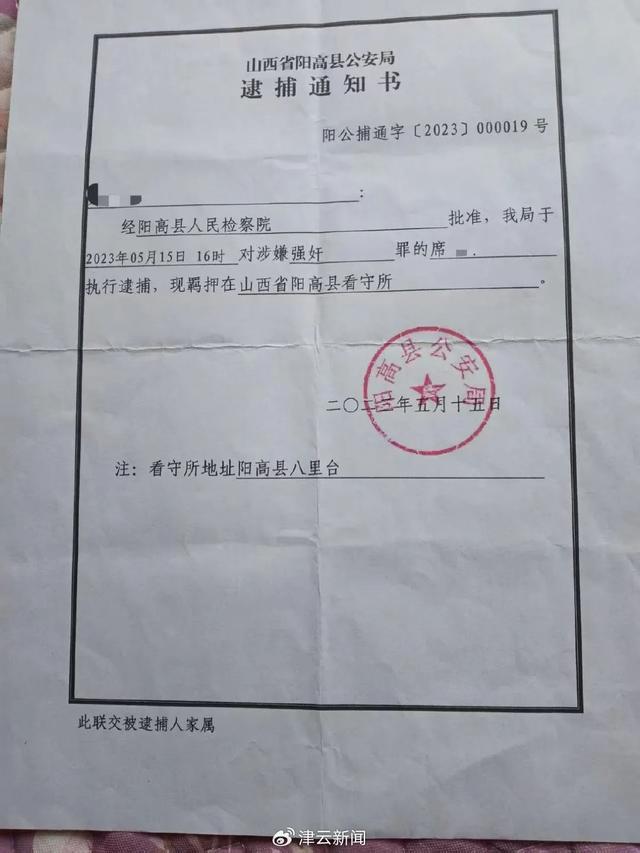 山西省阳高县公安局
逮捕通知书
阳公捕通字〔2023〕000019号
:
经阳高县人民检察院 批准，我局于
2023年05月15日 16时 对涉嫌强奸 罪的席 .
执行逮捕，现羁押在山西省阳高县看守所 。
阳高县公安局
二〇二 年五月十五日
注：看守所地址阳高县八里台
此联交被逮捕人家属
津云新闻